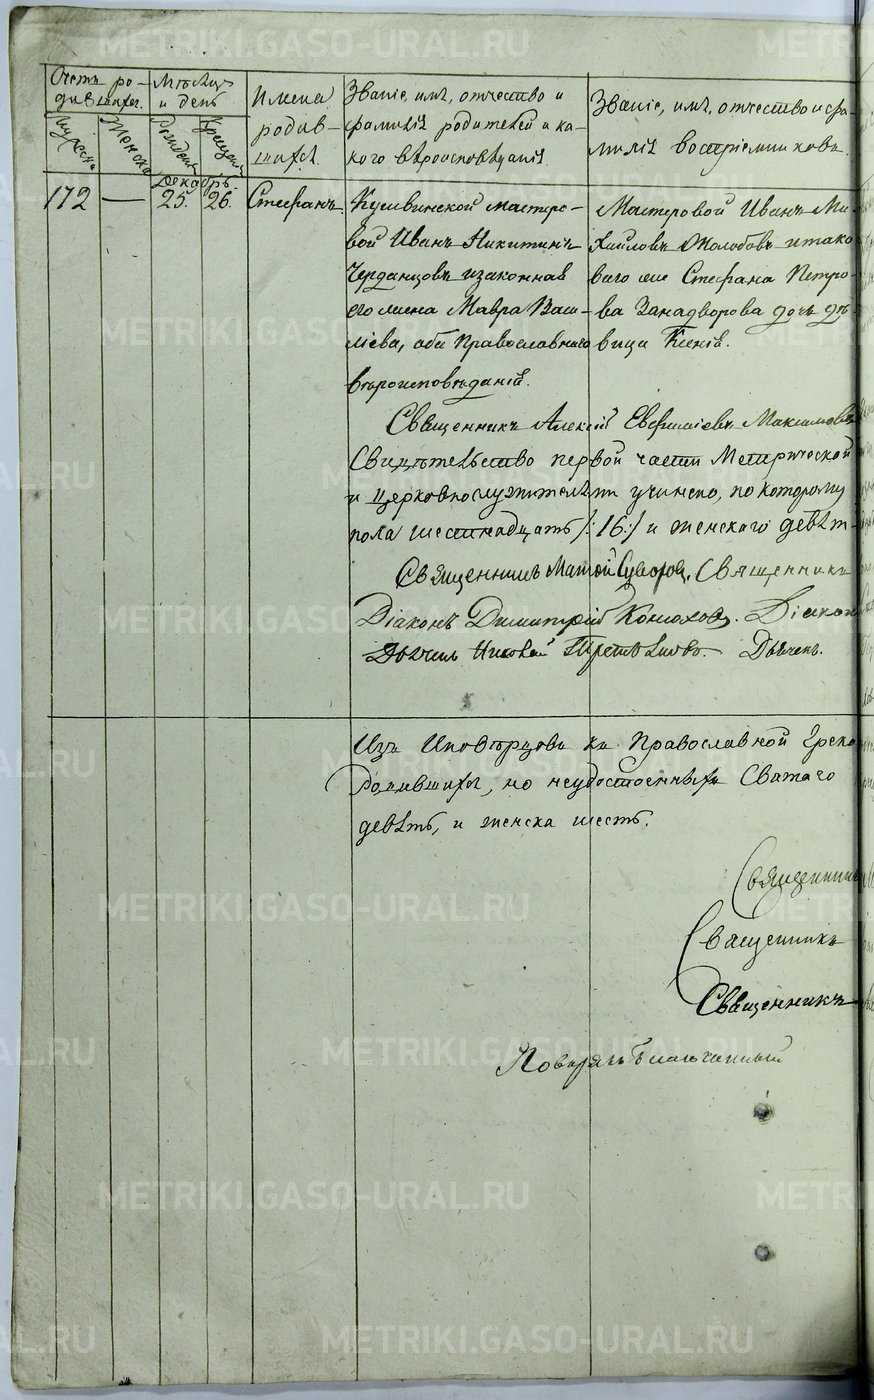 Счетъ ро-
дившихся.
Мѣсяцъ
и день
Имена
родив-
шихся.
Званіе, имя, отчество и
фамилія родителей и ка-
кого вѣроисповѣданія.
Званіе, имя, отчество и фа-
милія воспріемниковъ.
Мужска
Женска
Рожденія
Крещенія
Декабрь.
172 — 25. 26. Стефанъ.
Кушвинской мастеро-
вой Иванъ Никитинъ
Черданцовъ и законная
его жена Мавра Васи-
лїева, оба Православнаго
вѣроисповѣданія.
Мастеровой Иванъ Ми-
хайловъ Жолобовъ и тако-
ваго же Стефана Петро-
ва Занадворова дочь дѣ-
вица Ксенія.
Священникъ Алексій Евфиміевъ Максимовъ
Свидѣтельство первой части Метрической
и церковнослужителями учинено, по которому
пола шестнадцать /:16:/ и женскаго девят-
Священникъ Матѳей Суворов. Священникъ
Діаконъ Димитрій Конюхов. Діакон
Дьячекъ Николай Дьячекъ.
Изъ Иновѣрцовъ къ Православной Греко
Родившихся, но неудостоенныхъ Святаго
девять, и женска шесть.
Священникъ
Священникъ
Священникъ
METRIKI.GASO-URAL.RU